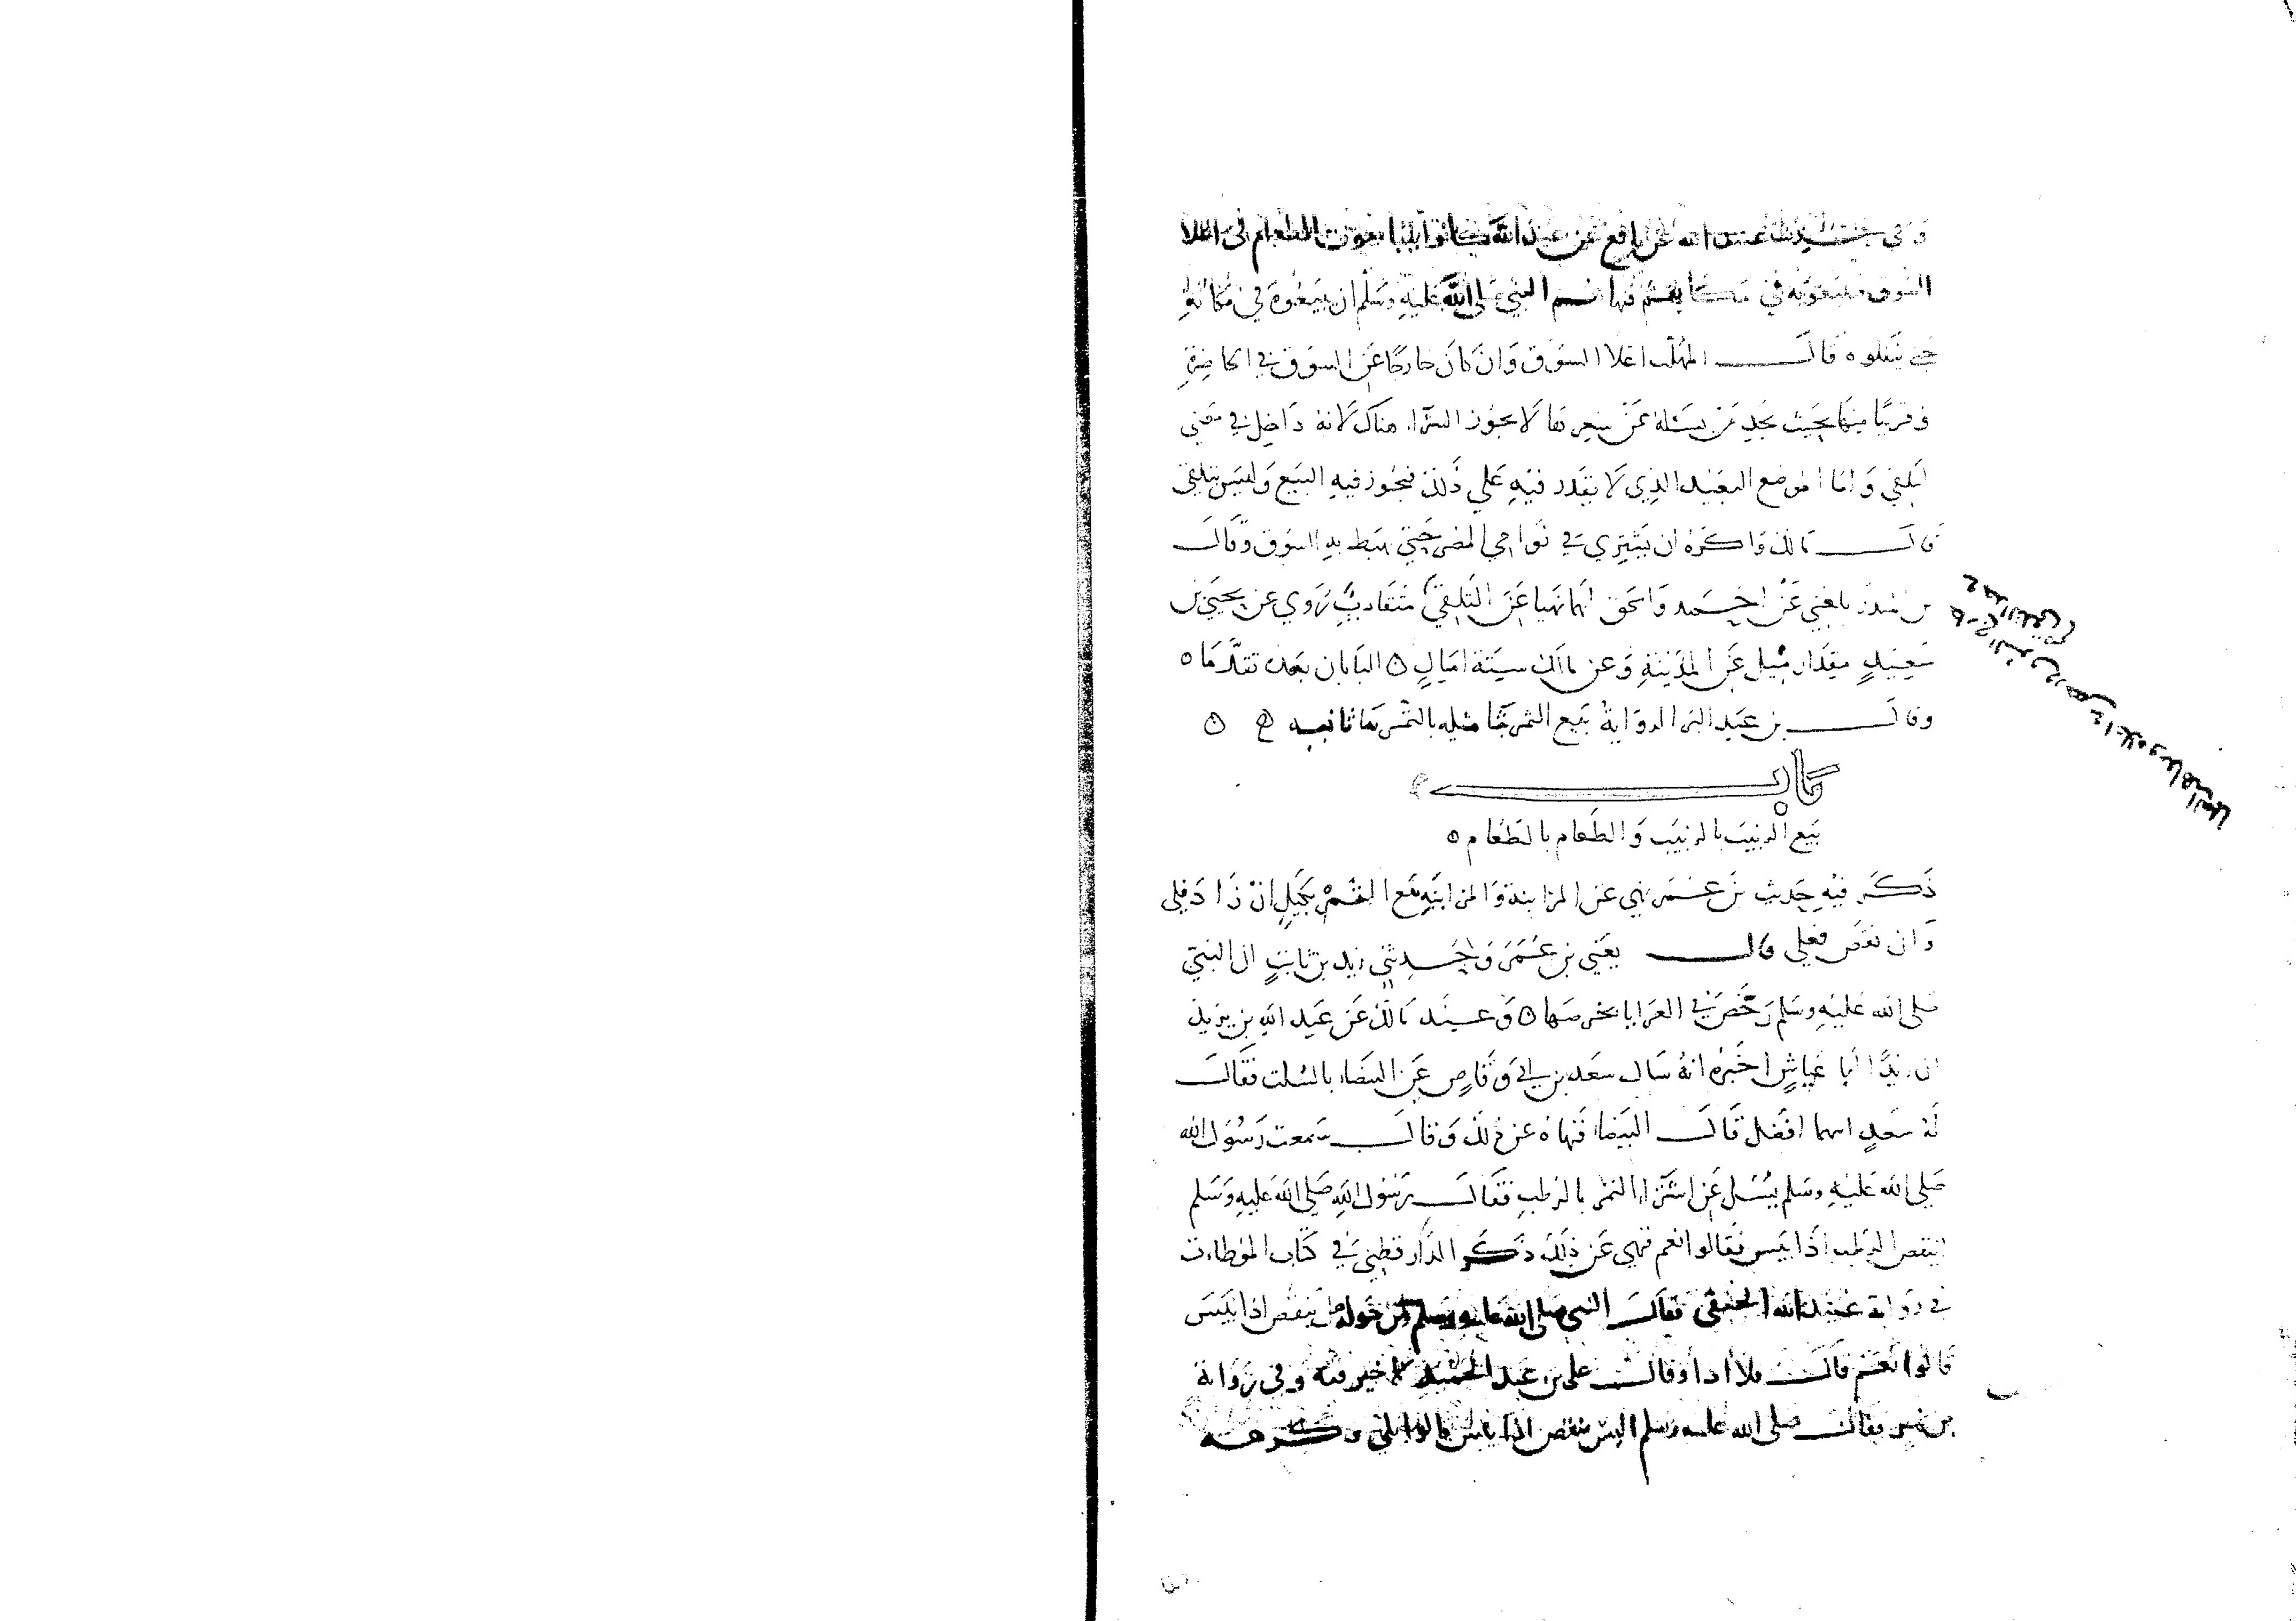 وفي حديث عبيد الله عن نافع عن عبد الله كانوا يتبايعون الطعام في اعلا
السوق فيبيعونه في مكانهم فنهاهم النبي صلى الله عليه وسلم ان يبيعوه في مكانه
حتى ينقلوه قال المهلب اعلا السوق وان كان خارجا عن السوق في الحاضرة
وقريبا منها بحيث يجد من يسئله عن سعرها لا يجوز الشرا هناك لانه داخل في معنى
التلقي واما الموضع البعيد الذي لا يقدر فيه على ذلك فيجوز فيه البيع وليس بتلقي
قال مالك واكره ان يشتري في نواحي المصر حتى يهبط به السوق وقال
بن المنذر بلغني عن احمد واسحق انهما نهيا عن التلقي متقارب روي عن يحيى بن
سعيد مقدار ميل عن المدينة وعن مالك ستة اميال ٥ البابان بعده تقدما ٥
وقال بن عبد البر الرواية بيع الثمر بالتمر
باب
بيع الزبيب بالزبيب والطعام بالطعام ٥
ذكر فيه حديث بن عمر نهى عن المزابنة والمزابنة بيع الثمر بكيل ان زاد فلي
وان نقص فعلي قال يعني بن عمر وحدثني زيد بن ثابت ان النبي
صلى الله عليه وسلم رخص في العرايا بخرصها ٥ وعند مالك عن عبد الله بن يزيد
ان زيدا ابا عياش اخبره انه سال سعد بن ابي وقاص عن البيضا بالسلت فقال
له سعد ايهما افضل قال البيضا فنهاه عن ذلك وقال سمعت رسول الله
صلى الله عليه وسلم يسئل عن اشترا التمر بالرطب فقال رسول الله صلى الله عليه وسلم
اينقص الرطب اذا يبس فقالوا نعم فنهى عن ذلك ذكر الدارقطني في كتاب الموطات
في رواية الحنفي فقال النبي صلى الله عليه وسلم لمن حوله هل ينقص اذا يبس
قالوا نعم قال فلا اذا وقال علي بن عبد الحميد لا خير فيه وفي رواية
بن فقال صلى الله عليه وسلم اليس ينقص اذا يبس قالوا بلى وكرهه